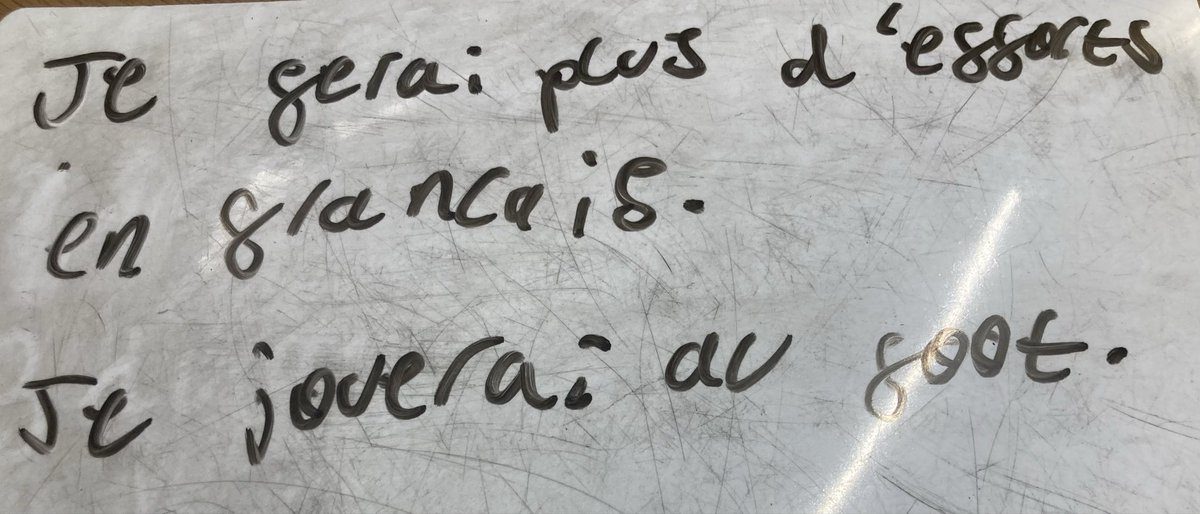 Je ferai plus d'efforts
en francais.
Je jouerai au foot.